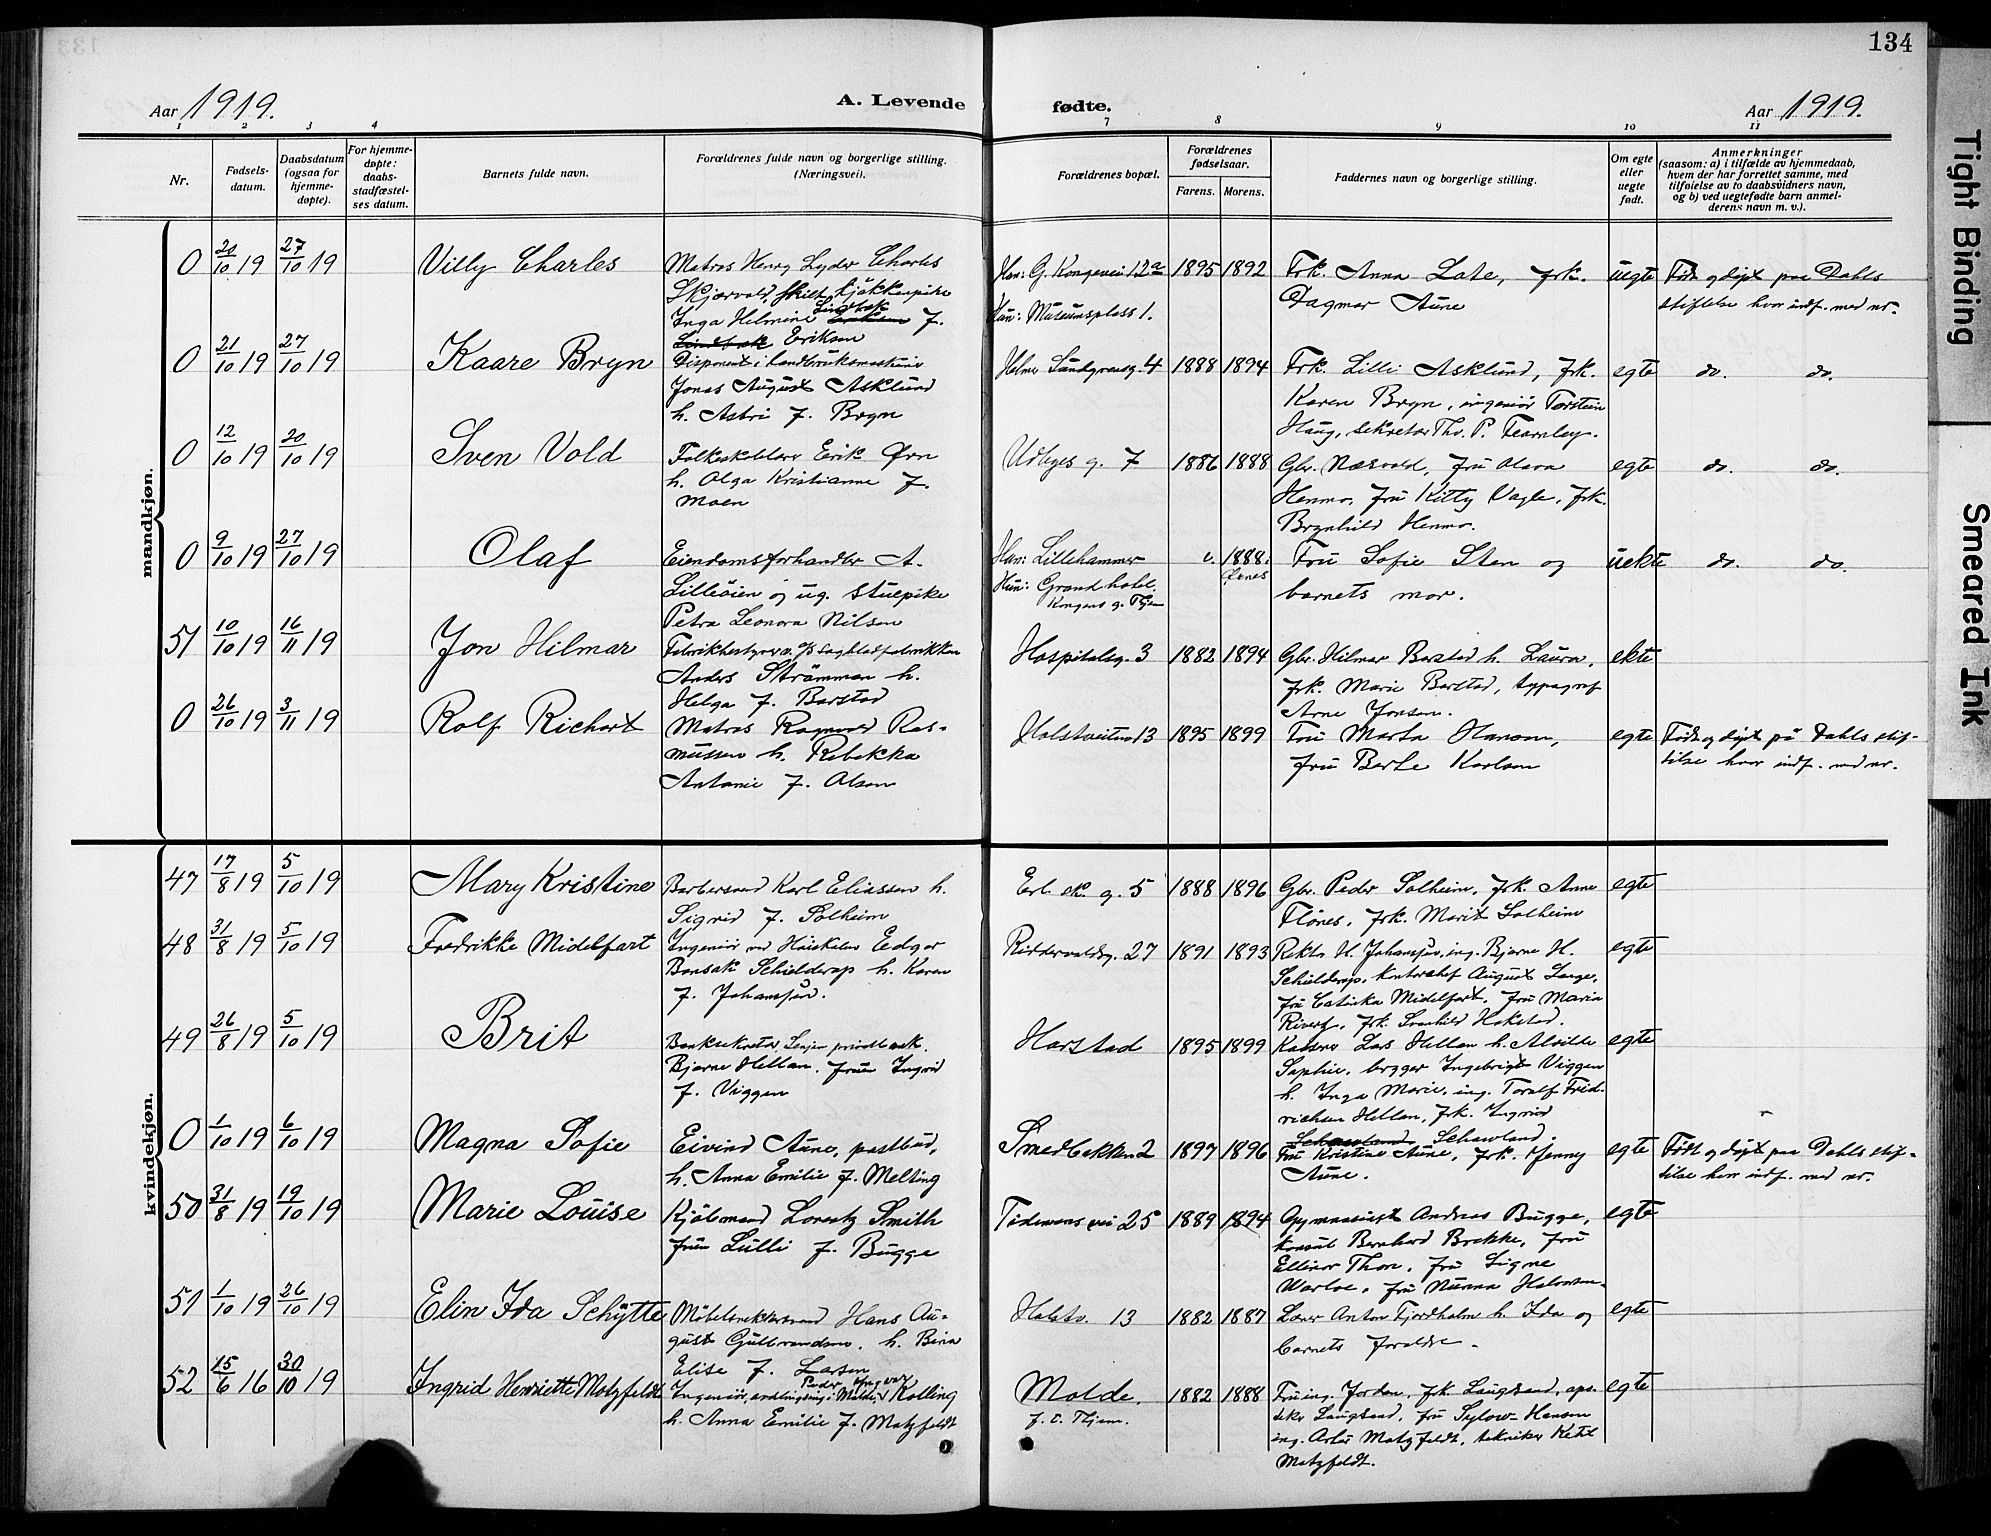 134
Aar 1919.
A. Levende fødte.
Aar 1919.
1 2 3 4 7 8 9 10 11
Nr.
Fødsels-
datum.
Daabsdatum
(ogsaa for
hjemme-
døpte).
For hjemme-
døpte:
daabs-
stadfæstel-
ses datum.
Barnets fulde navn.
Forældrenes fulde navn og borgerlige stilling.
(Næringsvei).
Forældrenes bopæl.
Forældrenes
fødselsaar.
Farens. Morens.
Faddernes navn og borgerlige stilling.
Om egte
eller
uegte
født.
Anmerkninger
(saasom: a) i tilfælde av hjemmedaab,
hvem der har forrettet samme, med
tilføielse av to daabsvidners navn,
og b) ved uegtefødte barn anmel-
derens navn m. v.).
mandkjøn.
0 20/10 19 27/10 19 Villy Charles
Matros Henry Lyder Charles
Skjærvold, skilt, kjøkkenpike
Inga Helmine Lindbak Eriksen f.
Lindbak Eriksen
Han: G. Kongevei 12a
Hun: Museumsplass 1.
1895 1892
Frk. Anna Lote, frk.
Dagmar Aune
uegte
Født og døpt paa Dahls
stiftelse hvor indf. med nr.
0 21/10 19 27/10 19 Kaare Bryn
Disponent i Landbruksmaskiner
Jonas August Asklund
h. Astri f. Bryn
Helmer Lundgrensg. 4
1888 1894
Frk. Lilli Asklund, frk.
Karen Bryn, ingeniør Torstein
Haug, sekretær Thv. P. Fearnley.
egte
do. do.
0 12/10 19 20/10 19 Sven Vold
Folkeskolelærer Erik Ørn
h. Olga Kristianne f.
Moen
Udbyes g. 7
1886 1888
Gbr. Næsvold, fru Olava
Henmo, fru Kitty Vagle, frk.
Brynhild Henmo.
egte
do. do.
0 9/10 19 27/10 19 Olaf
Eiendomsforhandler A.
Lilleöien og ug. stuepike
Petra Leonora Nilsen
Han: Lillehammer
Hun: Grand hotel.
Kongens g. Thjem
1888.
Fru Sofie Sten og
barnets mor.
uekte
do. do.
51 10/10 19 16/11 19 Jon Hilmar
Anders Strömmen h.
Helga f. Barstad
Hospitalsg. 3
1882 1894
Gbr. Hilmar Barstad h. Laura,
frk. Marie Barstad, typograf
Arne Jonsen.
ekte
0 26/10 19 3/11 19 Rolf Richart
Matros Ragnvald Ras-
mussen h. Rebekka
Antonie f. Olsen
Holstveiten 13
1895 1899
Fru Marta Hansen,
fru Berte Karlsen
egte
Født og døpt på Dahls stif-
telse hvor indf. med nr.
kvindekjøn.
47 17/8 19 5/10 19 Mary Kristine
Barbersvend Karl Eliassen h.
Sigrid f. Solheim
Erl. sk. g. 5
1888 1896
Gbr. Peder Solheim, frk. Anne
Flönes, frk. Marit Solheim
egte
48 31/8 19 5/10 19 Fredrikke Midelfart
Ingeniör ved Höiskolen Edgar
Bonsak Schielderup h. Karen
f. Johanssen.
Riddervoldsg. 27
1891 1893
Rektor H. Johanssen, ing. Bjarne H.
Schielderup, kontorchef August Lange,
fru Catinka Midelfart, fru Maria
Rivertz, frk. Svanhild Hokstad.
egte
49 26/8 19 5/10 19 Brit
Banksekretær Senjen privatbank.
Bjarne Hellan. fruen Ingrid
f. Viggen
Harstad
1895 1899
Kasserer Lars Hellan h. Alvilde
Sophie, brygger Ingebrigt Viggen
h. Inga Marie, ing. Toralf Frid-
richsen Hellan, frk. Ingrid
Schawland. Schawland.
egte
0 1/10 19 6/10 19 Magna Sofie
Eivind Aune, postbud,
h. Anna Emilie f. Melting
Smedbakken 2
1897 1896
Fru Kristine Aune, frk. Jenny
Aune.
egte
Født og døpt paa Dahls stif-
telse hvor indf. med nr.
50 31/8 19 19/10 19 Marie Louise
Kjöbmand Lorentz Smith
fruen Lulli f. Bugge
Tidemans vei 25
1889 1894
Gymnasiast Andreas Bugge,
konsul Bernhard Brekke, fru
Ellinor Thon, fru Signe
Warloe, fru Nunna Halvorsen.
egte
51 1/10 19 26/10 19 Elin Ida Schytte
Möbelsnekkersvend Hans Au-
gust Gulbrandsen. h. Bina
Elise f. Larsen
Holstv. 13
1882 1887
Lærer Anton Fjordholm h. Ida og
barnets foreldre.
egte
52 15/6 16 30/10 19 Ingrid Henriette Motzfeldt
Peder Ingvar
Kolling
h. Anna Emilie f. Motzfeldt
Molde.
f. i Thjem.
1882 1888
Fru ing. Jorden, frk. Laugsand, apo-
teker Laugsand, fru Sylow-Hansen
ing. Artur Motzfeldt, tekniker Ketil
Motzfeldt.
egte
Tight Binding
Smeared Ink